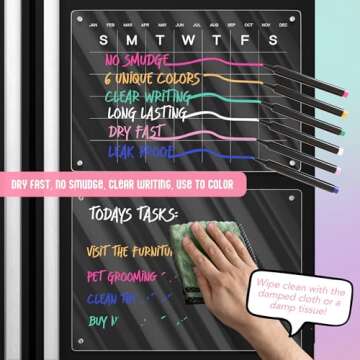 JAN FEB MAR APR MAY JUN JUL AUG SEP OCT NOV DEC
S M T W T F S
NO SMUDGE
6 UNIQUE COLORS
CLEAR WRITING
LONG LASTING
DRY FAST
LEAK PROOF
DRY FAST, NO SMUDGE, CLEAR WRITING, USE TO COLOR
TODAYS TASKS:
VISIT THE FURNITU
PET GROOMING
CLEAN
BUY
Wipe clean with the
damped cloth or a
damp tissue!